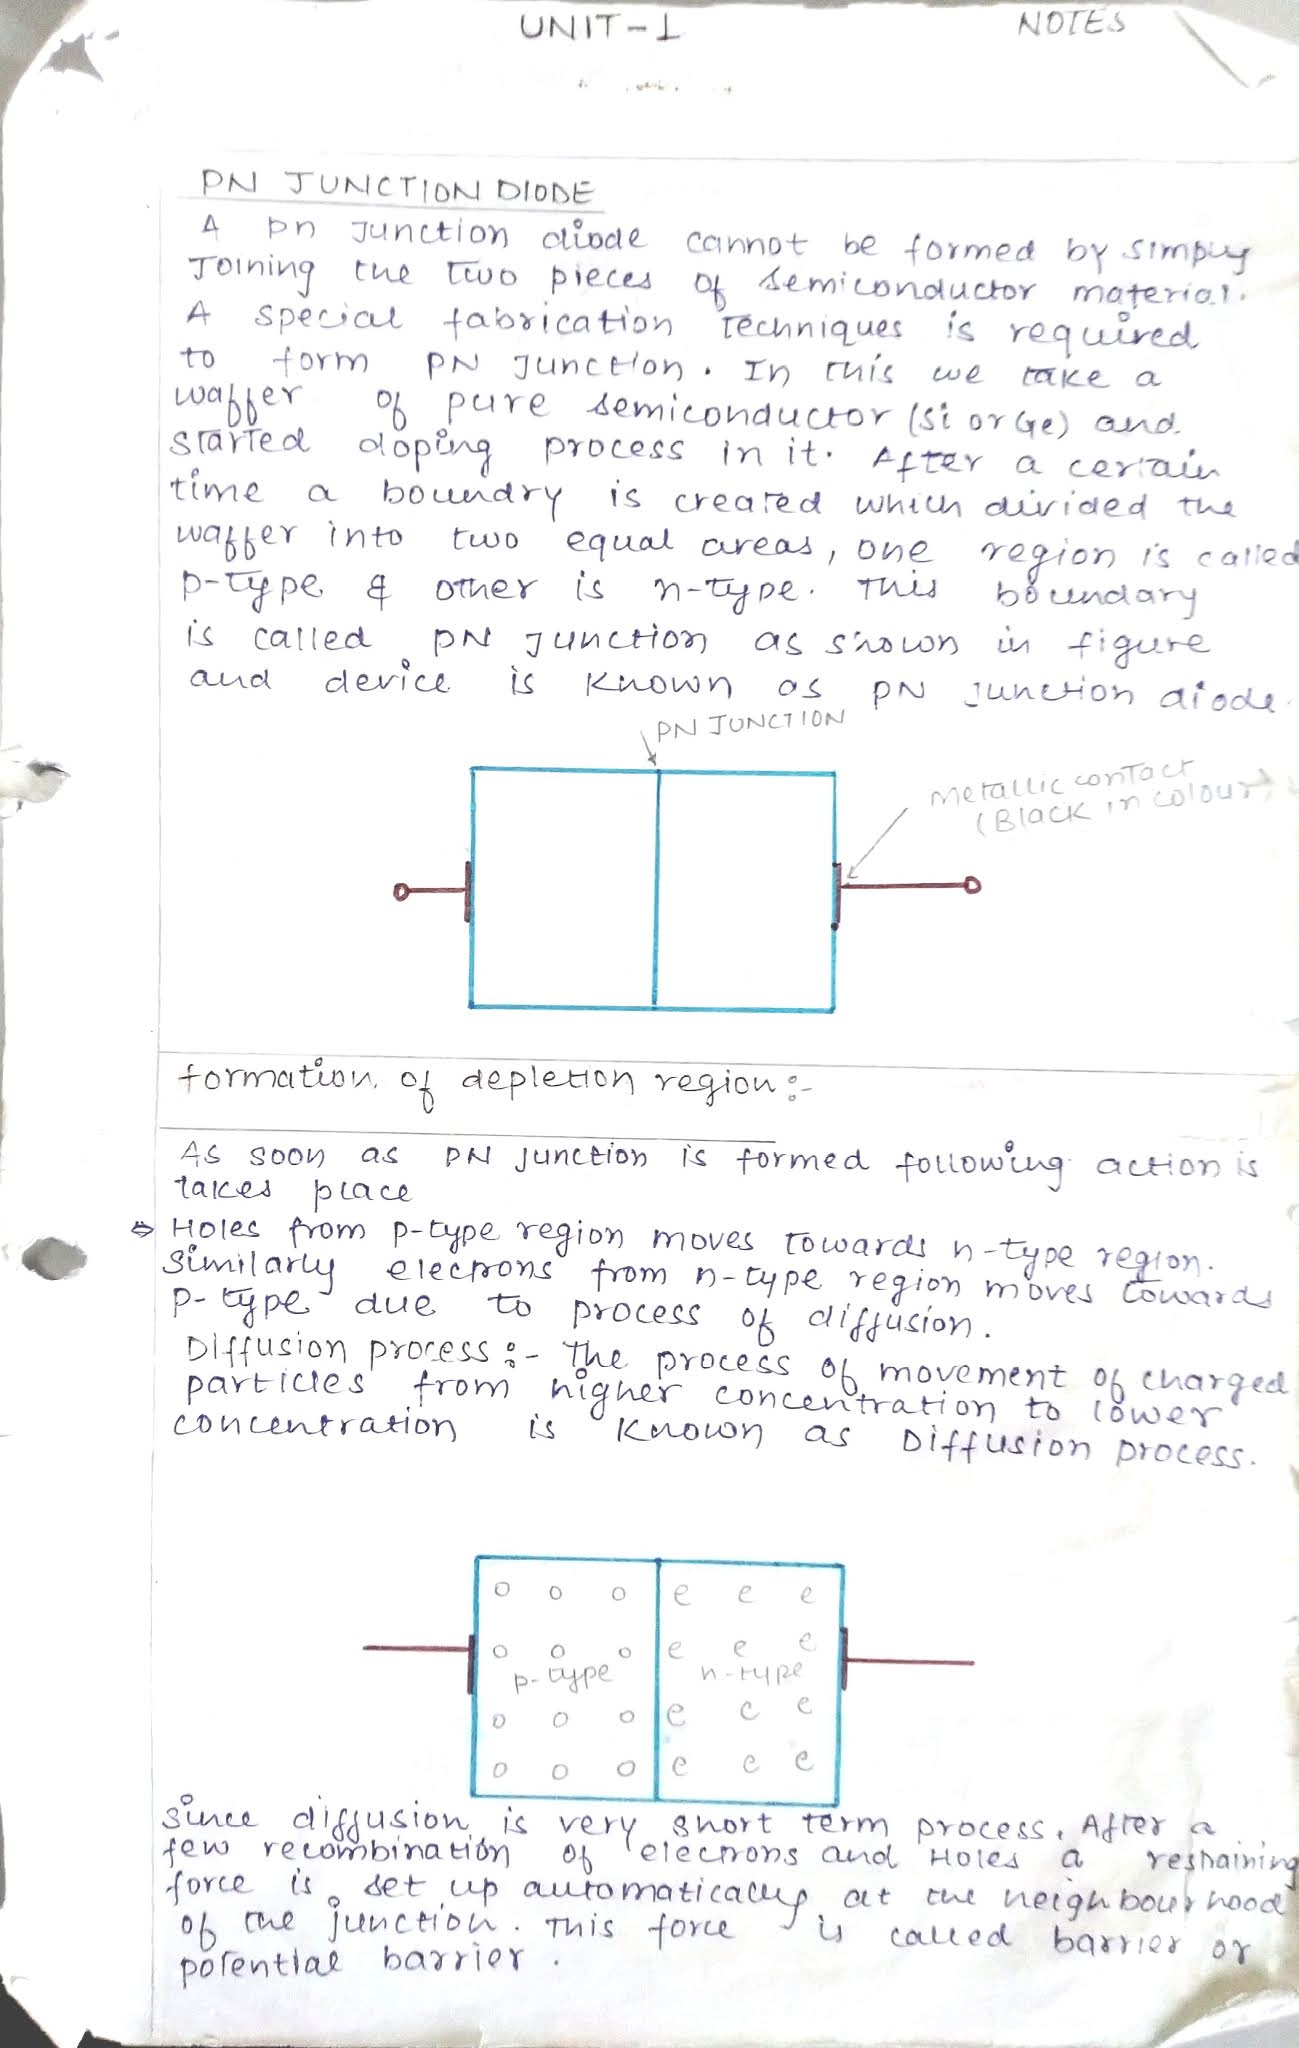 UNIT-1
NOTES
PN JUNCTION DIODE
A pn junction diode cannot be formed by simply
Joining the two pieces of semiconductor material.
A special fabrication Techniques is required
to form PN Junction. In this we take a
waffer of pure semiconductor (Si or Ge) and
started doping process in it. After a certain
time a boundry is created which divided the
waffer into two equal areas, one region is called
p-type & other is n-type. This boundary
is called PN junction as shown in figure
and device is known as PN junction diode.
PN JUNCTION
Metallic contact
(Black in colour)
formation of depletion region :-
As soon as PN junction is formed following action is
takes place
⇒ Holes from p-type region moves towards n-type region.
Similarly electrons from n-type region moves towards
p-type due to process of diffusion.
Diffusion process :- The process of movement of charged
particles from higher concentration to lower
concentration is known as Diffusion process.
o o o e e e
o o o e e e
p-type n-type
o o o e e e
o o o e e e
Since diffusion is very short term process. After a
few recombination of electrons and Holes a restraining
force is set up automatically at the neighbourhood
of the junction. This force is called barrier or
potential barrier.